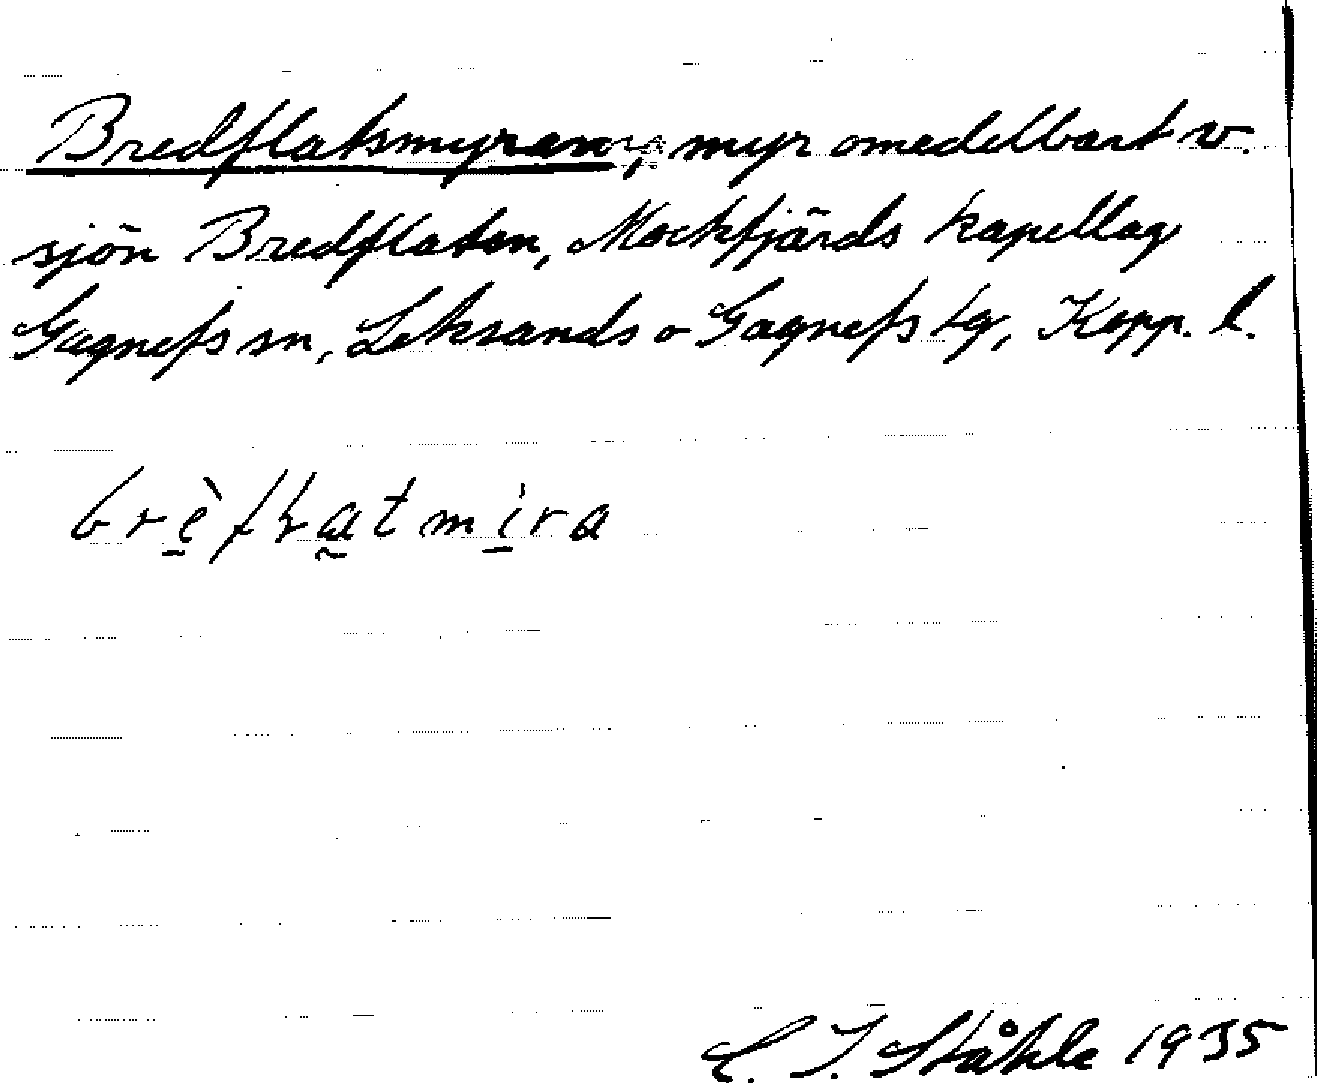 Bredflatsmyren, myr omedelbart v.
sjön Bredflaten, Mockfjärds kapellag
Gagnefs sn, Leksands o Gagnefs tg, Kopp. l.
C. I. Ståhle 1935